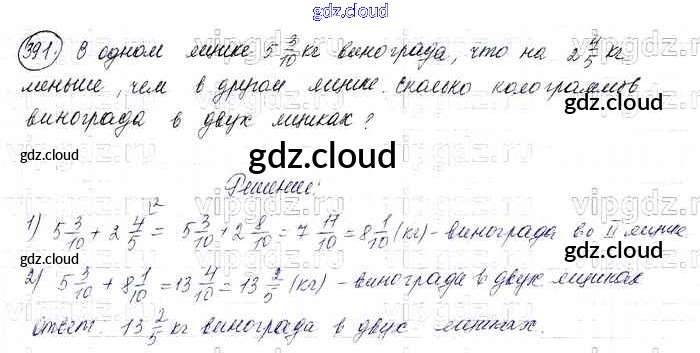 gdz.cloud
391. В одном ящике 5 3/10 кг винограда, что на 2 4/5 кг
меньше, чем в другом ящике. Сколько колограммов
винограда в двух ящиках?
gdz.cloud gdz.cloud
gdz.cloud
Решение:
1) 5 3/10 + 2 4/5 = 5 3/10 + 2 8/10 = 7 11/10 = 8 1/10 (кг) - винограда во II ящике
2) 5 3/10 + 8 1/10 = 13 4/10 = 13 2/5 (кг) - винограда в двух ящиках
Ответ: 13 2/5 кг винограда в двух ящиках.
gdz.cloud gdz.cloud